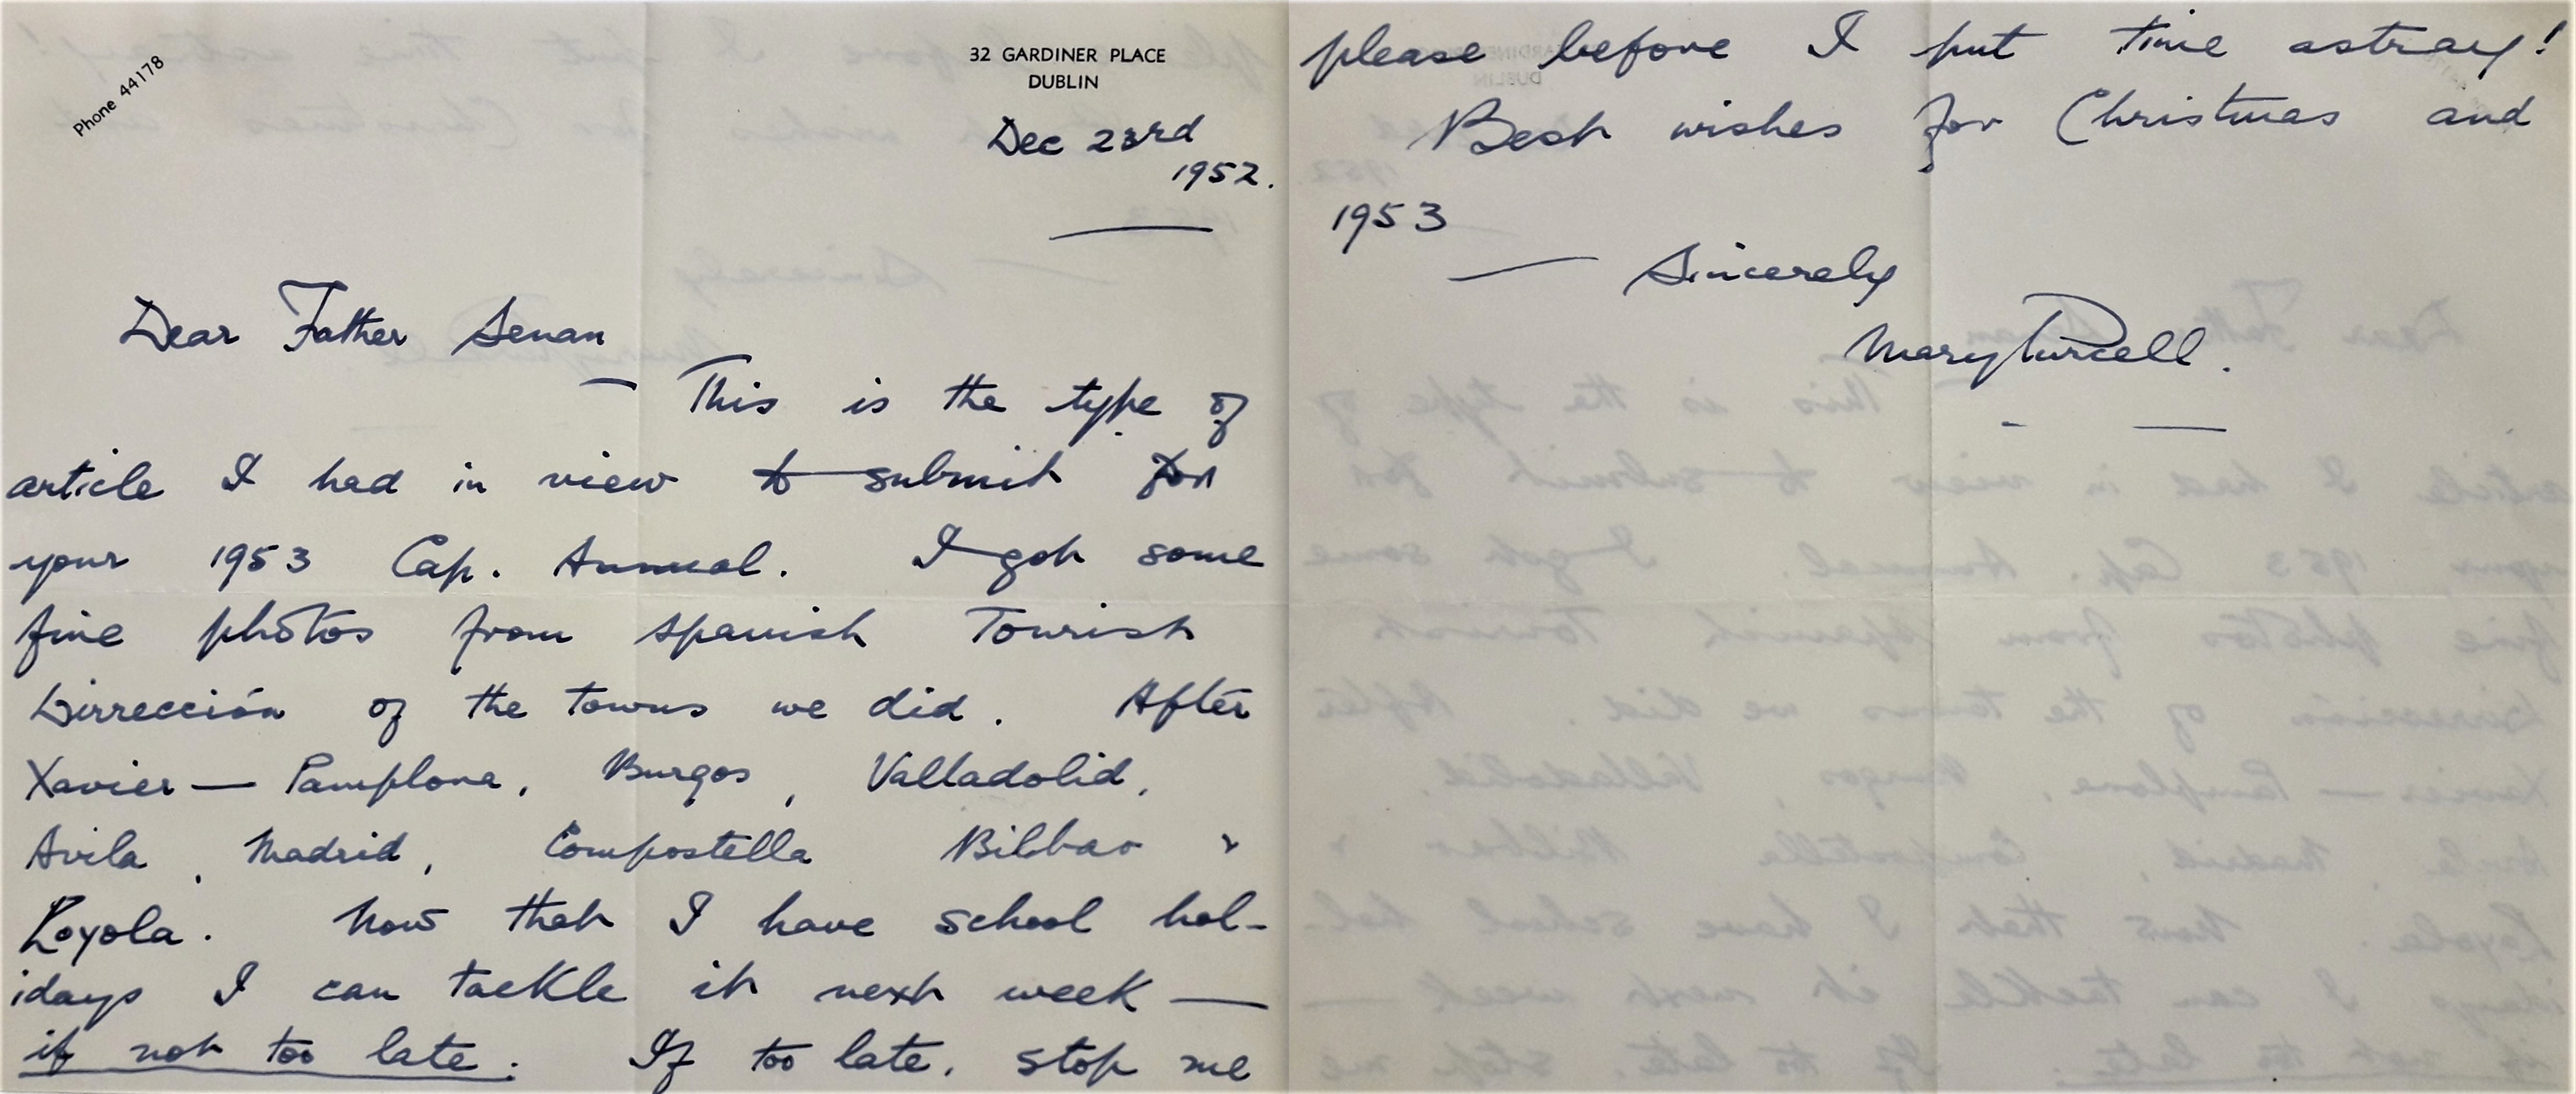 Phone 44178
32 GARDINER PLACE
DUBLIN
Dec 23rd
1952.
Dear Father Senan
— This is the type of
article I had in view to submit for
your 1953 Cap. Annual. I got some
fine photos from Spanish Tourist
Dirrección of the towns we did. After
Xavier — Pamplona, Burgos, Valladolid,
Avila, Madrid, Compostella Bilbao &
Loyola. Now that I have school hol-
idays I can tackle it next week —
if not too late. If too late, stop me
please before I put time astray!
Best wishes for Christmas and
1953
— Sincerely
Mary Purcell.